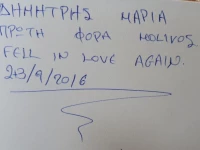 ΔΗΜΗΤΡΗΣ ΜΑΡΙΑ
ΠΡΩΤΗ ΦΟΡΑ MOLIVOS
FELL IN LOVE AGAIN.
23/9/2016